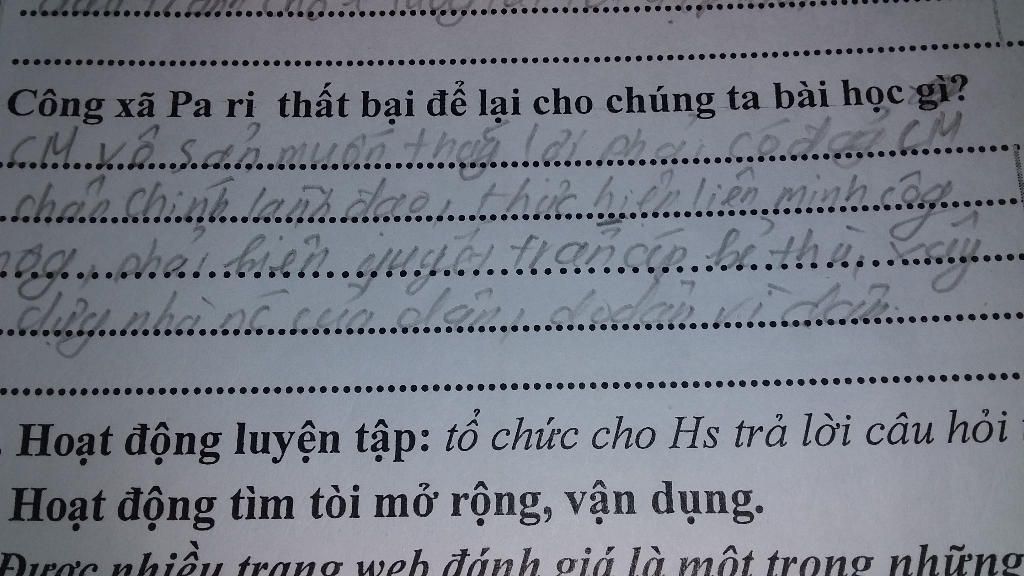 Công xã Pa ri thất bại để lại cho chúng ta bài học gì?
CM vô sản muốn thắg lợi phải có đảg CM
chân chính lãnh đạo, thực hiện liên minh côg
nôg, phải kiên quyết trấn áp kẻ thù, xây
dựg nhà nc của dân, do dân vì dân.
Hoạt động luyện tập: tổ chức cho Hs trả lời câu hỏi
Hoạt động tìm tòi mở rộng, vận dụng.
Được nhiều trang web đánh giá là một trong những